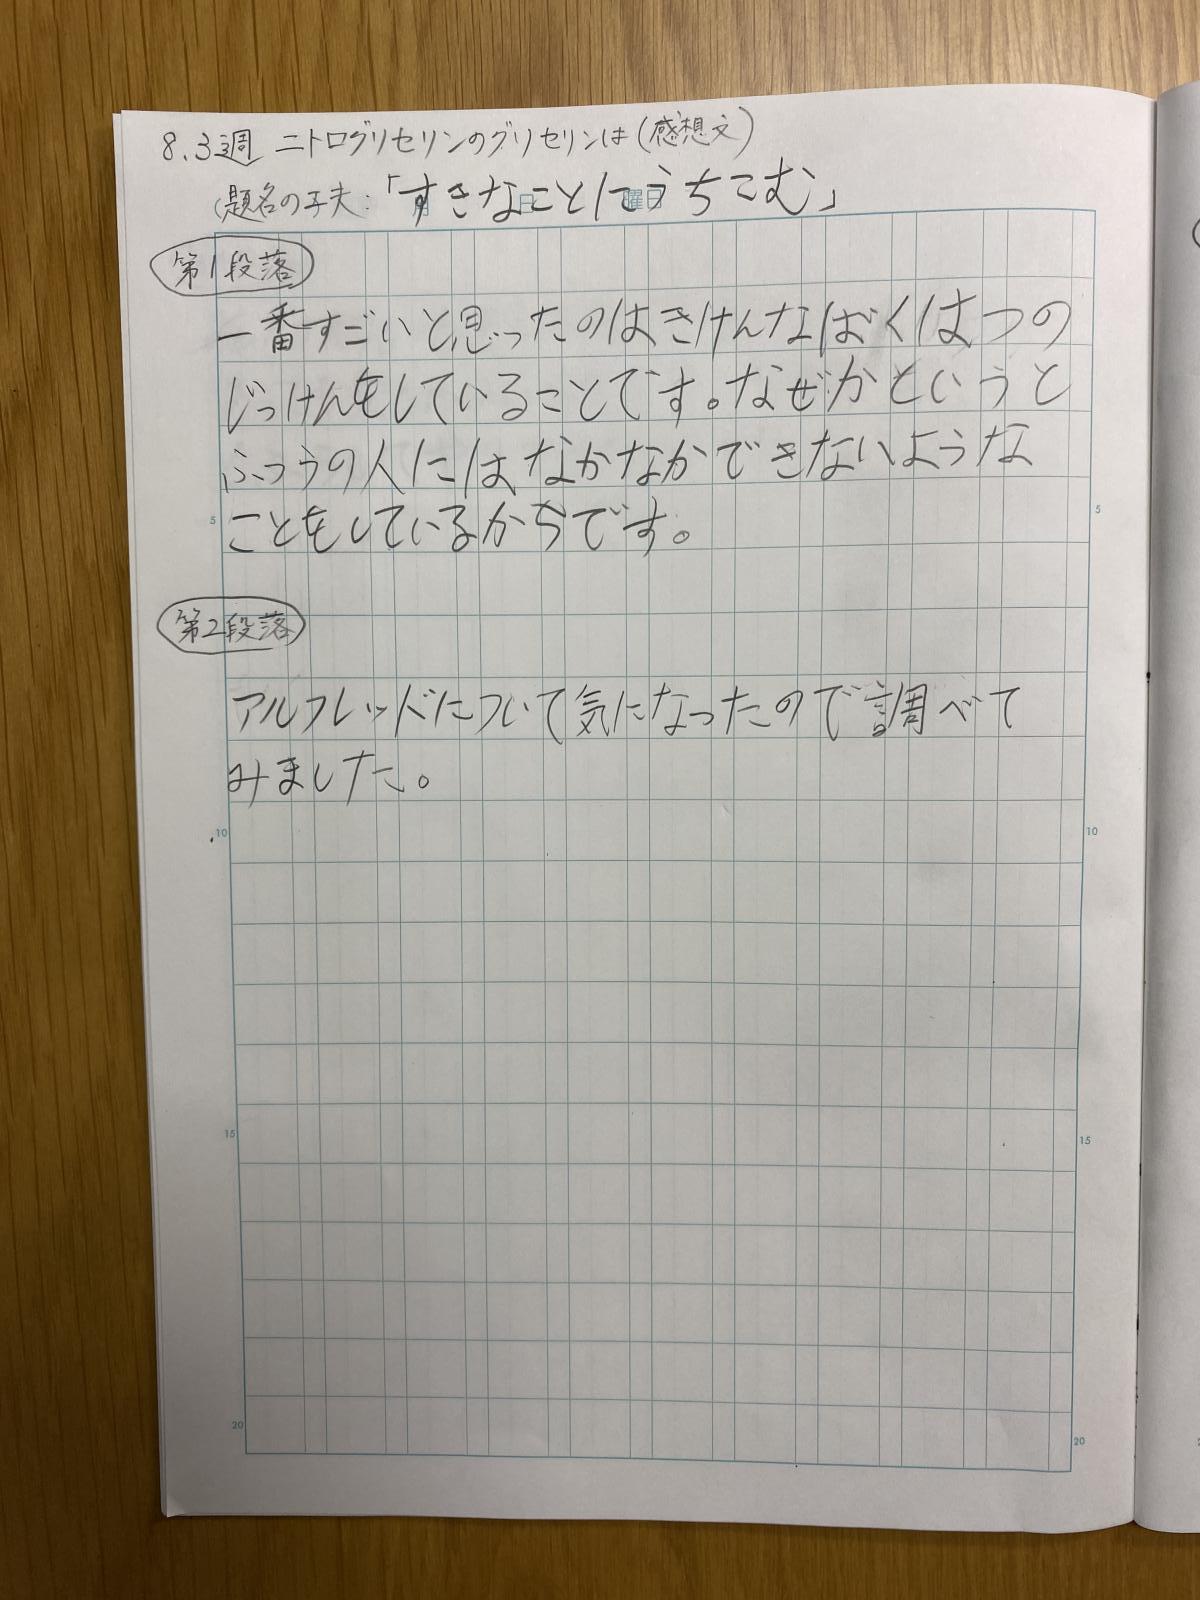 8.3週 ニトログリセリンのグリセリンは(感想文)
題名の工夫:「すきなことにうちこむ」
第1段落
一番すごいと思ったのはきけんなばくはつの
じっけんをしていることです。なぜかというと
ふつうの人にはなかなかできないような
ことをしているからです。
5
5
第2段落
アルフレッドについて気になったので調べて
みました。
10
10
15
15
20
20